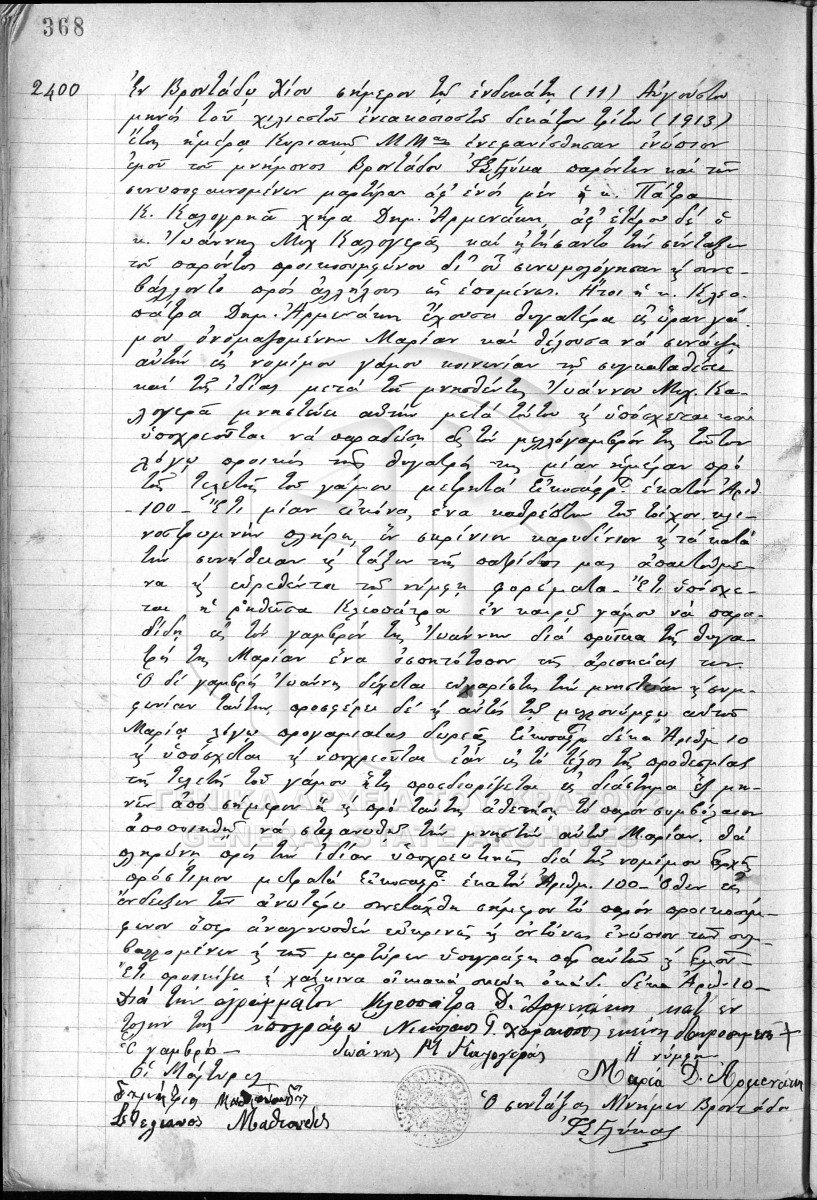 368
2400 Ἐν Βροντάδῳ Χίου σήμερον τῇ ἑνδεκάτῃ (11) Αὐγούστου
μηνὸς τοῦ χιλιοστοῦ ἐνεακοσιοστοῦ δεκάτου τρίτου (1913)
ἔτους ἡμέρᾳ Κυριακῇ Μ.Μ. ἐνεφανίσθησαν ἐνώπιον
ἐμοῦ τοῦ μνήμονος Βροντάδου Γλύκα παρόντων καὶ τῶν
συνυπογραφομένων μαρτύρων ἀφ' ἑνὸς μὲν ἡ κ. Πάτρα
Κ. Καλογρηᾶ χήρα Δημ. Ἀρμενάκη, ἀφ' ἑτέρου δὲ ὁ
κ. Ἰωάννης Μιχ Καλογερᾶς καὶ ᾐτήσαντο τὴν σύνταξιν
τοῦ παρόντος προικοσυμφώνου δι' οὗ συνωμολόγησαν κ συνε-
βάλλοντο πρὸς ἀλλήλους ὡς ἑπομένως. Ἤτοι ἡ κ. Κλεο-
πάτρα Δημ. Ἀρμενάκη ἔχουσα θυγατέρα εἰς ὥραν γά-
μου ὀνομαζομένην Μαρίαν καὶ θέλουσα νὰ συνάψῃ
αὐτὴν εἰς νομίμου γάμου κοινωνίαν τῇ συγκαταθέσει
καὶ τῆς ἰδίας μετὰ τοῦ μνησθέντος Ἰωάννου Μιχ. Κα-
λογερᾶ μνηστεύει αὐτὴν μετὰ τούτου κ ὑπόσχεται καὶ
ὑποχρεοῦται νὰ παραδώσῃ εἰς τὸν μελλόγαμβρόν της τοῦτον
λόγῳ προικὸς τῆς θυγατρός της μίαν ἡμέραν πρὸ
τῆς τελετῆς τοῦ γάμου μετρητὰ Εἰκοσάφρ. ἑκατὸν Ἀριθ.
-100- Ἔτι μίαν εἰκόνα, ἕνα καθρέπτην τοῦ τοίχου κλι-
νοστρωμνὴν πλήρη, ἓν σκρίνιον καρυδένιον κ τὰ κατὰ
τὴν συνήθειαν κ τάξιν τῆς πατρίδος μας ἀπαιτούμε-
να κ εὑρεθέντα τῆς νύμφης φορέματα. Ἔτι ὑπόσχε-
ται ἡ ῥηθεῖσα Κλεοπάτρα ἐν καιρῷ γάμου νὰ παρα-
δίδῃ εἰς τὸν γαμβρόν της Ἰωάννην διὰ προῖκα τῆς θυγα-
τρός της Μαρίαν ἕνα τῆς ἀρεσκείας των.
Ὁ δὲ γαμβρὸς Ἰωάννης δέχεται εὐχαρίστως τὴν μνηστείαν κ συμ-
φωνίαν ταύτην, προσφέρει δὲ κ αὐτὸς τῇ μελλονύμφῳ αὐτοῦ
Μαρίᾳ λόγῳ προγαμιαίας δωρεᾶς Εἰκοσάφρ δέκα Ἀριθμ 10
κ ὑπόσχεται κ ὑποχρεοῦται ἐὰν εἰς τὸ τέλος τῆς προθεσμίας
τῆς τελετῆς τοῦ γάμου ἥτις προσδιορίζεται εἰς διάστημα ἓξ μη-
νῶν ἀπὸ σήμερον ἢ κ πρὸ ταύτης ἀθετήσῃ τὸ παρὸν συμβόλαιον
ἀποποιηθῇ νὰ στεφανωθῇ τὴν μνηστὴν αὐτοῦ Μαρίαν, θὰ
πληρώνῃ πρὸς τὴν ἰδίαν ὑποχρεωτικῶς διὰ τῆς νομίμου ἀρχῆς
πρόστιμον μετρητὰ Εἰκοσάφρ. ἑκατὸν Ἀριθμ. 100- Ὅθεν εἰς
ἔνδειξιν τῶν ἀνωτέρω συνετάχθη σήμερον τὸ παρὸν προικοσύμ-
φωνον ὅπερ ἀναγνωσθὲν εὐκρινῶς κ ἐντόνως ἐνώπιον τῶν συμ-
βαλλομένων κ τῶν μαρτύρων ὑπεγράφη παρ' αὐτῶν κ ἐμοῦ.
Ἔτι κ χάλκινα οἰκιακὰ σκεύη ὀκάδ. δέκα Ἀριθ-10-
Διὰ τὴν ἀγράμματον Κλεοπάτρα Δ. Ἀρμενάκη κατ' ἐν-
τολήν της ὑπογράφω Νικόλαος Γ. ἐκείνη σταυροσημειοῖ +
Ὁ γαμβρὸς Ἰωάνης Μ Καλογεράς Ἡ νύμφη
Οἱ Μάρτυρες Μαρία Δ. Αρμενάκη
Δημήτριος Ματθιούδης Ὁ συντάξας Μνήμων Βροντάδου
Στεφανος Ματιουδις Γλύκας
ΓΕΝΙΚΑ ΑΡΧΕΙΑ ΤΟΥ ΚΡΑΤΟΥΣ
GENERAL STATE ARCHIVES